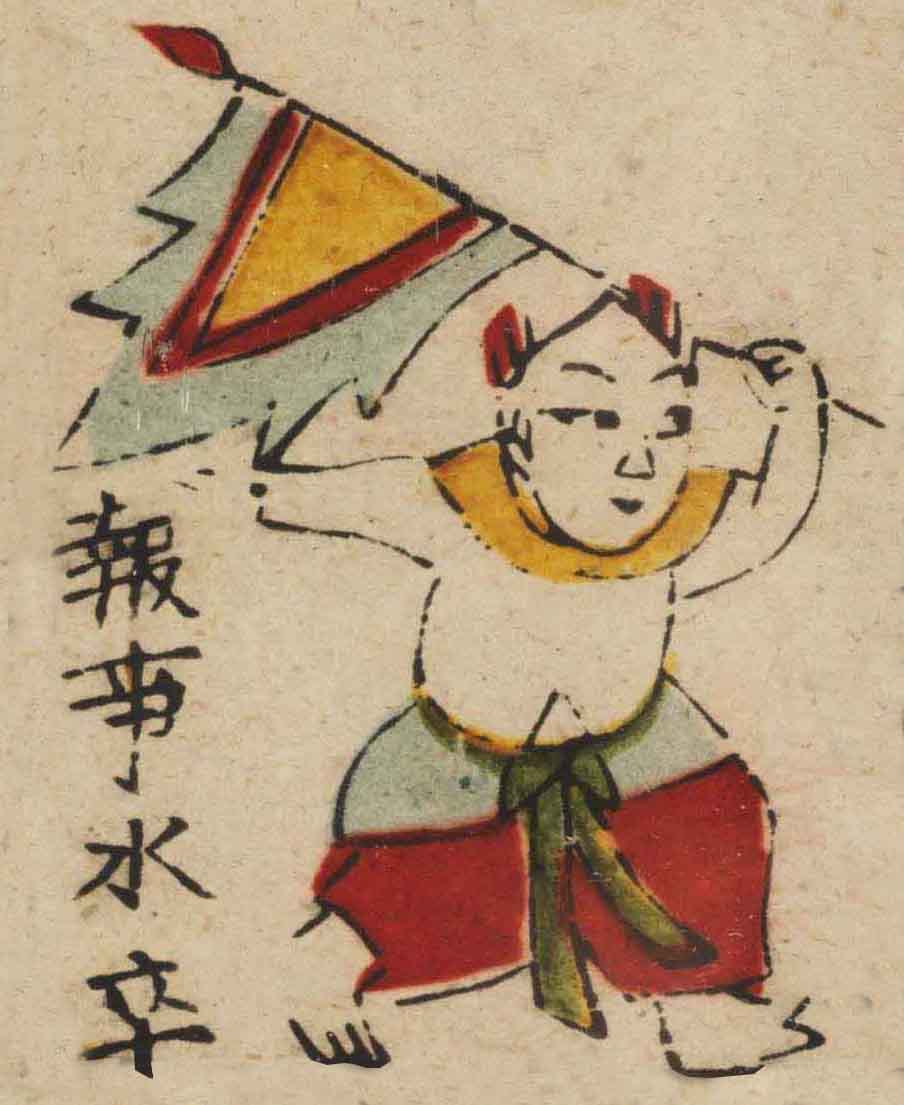 報事水卒